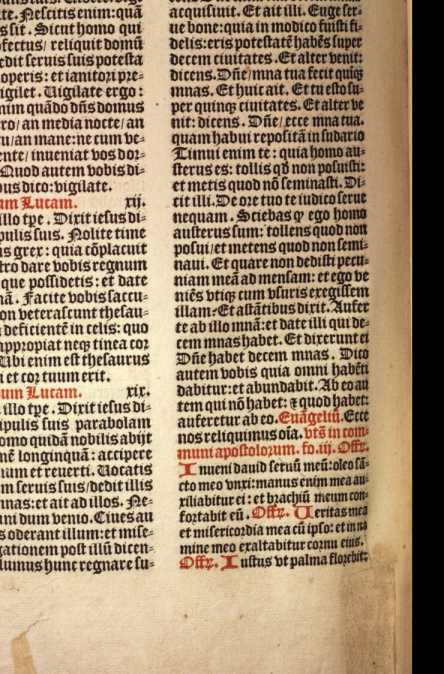 te. Nescitis enim: quā
s sit. Sicut homo qui
fectus/ reliquit domū
edit seruis suis potesta
operis: et ianitori pre-
igilet. Uigilate ergo:
nim quādo dn̄s domus
ro/an media nocte/an
u/an mane: ne cum ve-
ente/ inueniat vos dor-
Quod autem vobis di-
bus dico: vigilate.
um Lucam. xij.
illo tpe. Dixit iesus di-
pulis suis. Nolite time
s grex: quia cōplacuit
tro dare vobis regnum
que possidetis: et date
nā. Facite vobis saccu-
on veterascunt thesau-
deficientē in celis: quo
appropiat neqꝫ tinea cor
Ubi enim est thesaurus
i et cor tuum erit.
um Lucam. xix.
illo tpe. Dixit iesus di-
ipulis suis parabolam
omo quidā nobilis abijt
nē longinquā: accipere
num et reuerti. Uocatis
m seruis suis/dedit illis
nas: et ait ad illos. Ne-
ni dum venio. Ciues au
s oderant illum: et mise-
gationem post illū dicen-
lumus hunc regnare su-
acquisiuit. Et ait illi. Euge ser-
ue bone: quia in modico fuisti fi-
delis: eris potestatē habēs super
decem ciuitates. Et alter venit:
dicens. Dn̄e/ mna tua fecit quīqꝫ
mnas. Et huic ait. Et tu esto su-
per quinqꝫ ciuitates. Et alter ve
nit: dicens. Dn̄e/ ecce mna tua.
quam habui repositā in sudario
Timui enim te: quia homo au-
sterus es: tollis qd̄ non posuisti:
et metis quod nō seminasti. Di-
cit illi. De ore tuo te iudico serue
nequam. Sciebas qꝫ ego homo
austerus sum: tollens quod non
posui/et metens quod non semi-
naui. Et quare non dedisti pecu-
niam meā ad mensam: et ego ve
niēs vtiqꝫ cum vsuris exegissem
illam. Et astātibus dixit. Aufer
te ab illo mnā: et date illi qui de-
cem mnas habet. Et dixerunt ei
Dn̄e habet decem mnas. Dico
autem vobis quia omni habēti
dabitur: et abundabit. Ab eo au
tem qui nō habet: ⁊ quod habet:
auferetur ab eo. Euāgeliū. Ecce
nos reliquimus oīa. vts̄ in com-
muni apostolorum. fo. iij. Offꝝ.
Inueni dauid seruū meū: oleo sā-
cto meo vnxi: manus enim mea au-
xiliabitur ei: et brachiū meum con-
fortabit eū. Offꝝ. Ueritas mea
et misericordia mea cū ipso: et in no
mine meo exaltabitur cornu eius.
Offꝝ. Iustus vt palma florebit: